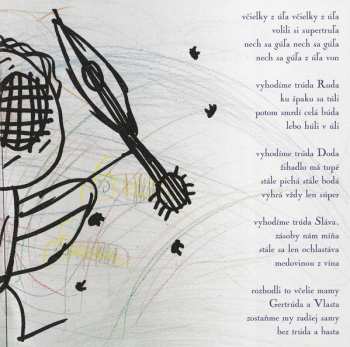 včielky z úľa včielky z úľa
volili si supertruľa
nech sa gúľa nech sa gúľa
nech sa gúľa z úľa von
vyhodíme trúda Ruda
ku špaku sa túli
potom smrdí celá búda
lebo húli v úli
vyhodíme trúda Doda
žihadlo má tupé
stále pichá stále bodá
vyhrá vždy len súper
vyhodíme trúda Sláva,
zásoby nám míňa
stále sa len ochlastáva
medovinou z vína
rozhodli to včelie mamy
Gertrúda a Vlasta
zostaňme my radšej samy
bez trúda a basta